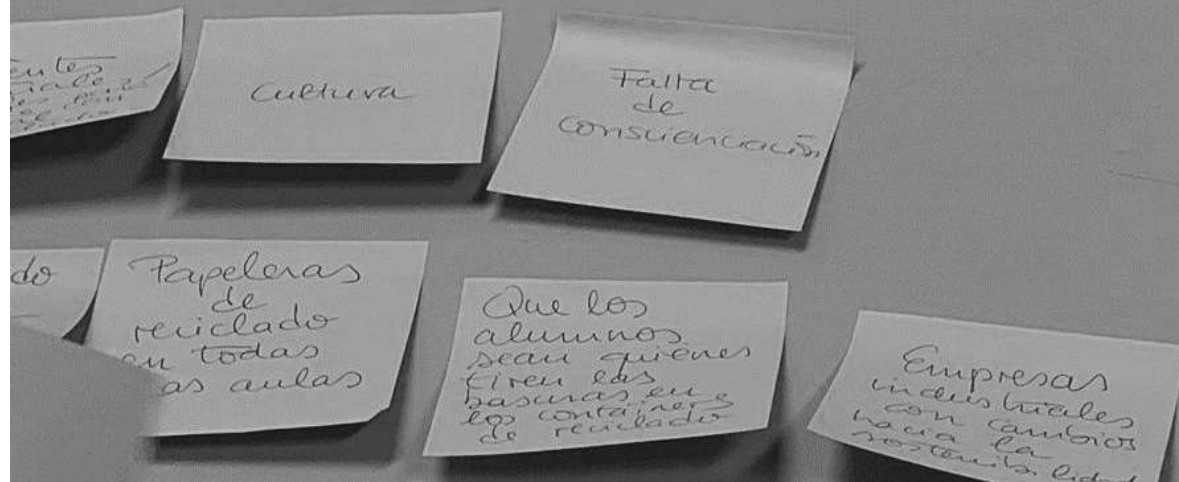 cultura
Falta
de
conscienciación
do
Papeleras
de
reciclado
en todas
as aulas
Que los
alumnos
sean quiénes
tiren las
basuras en
los contáiners
de reciclado
Empresas
industriales
con cambios
hacia la
sostenibilidad